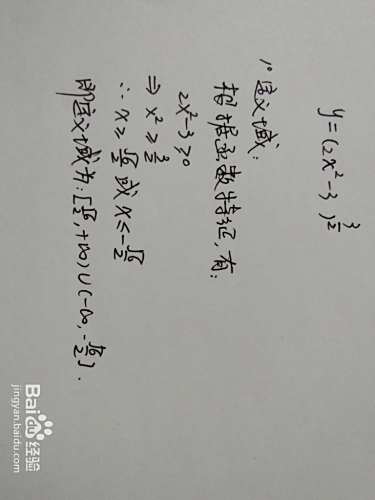 y=(2x²-3)^{3/2}
1°定义域:
根据函数特征,有:
2x²-3≥0
⇒ x²≥3/2
∴ x≥√6/2 或 x≤-√6/2
即定义域为:[√6/2,+∞)∪(-∞,-√6/2].
Baidu经验
jingyan.baidu.com